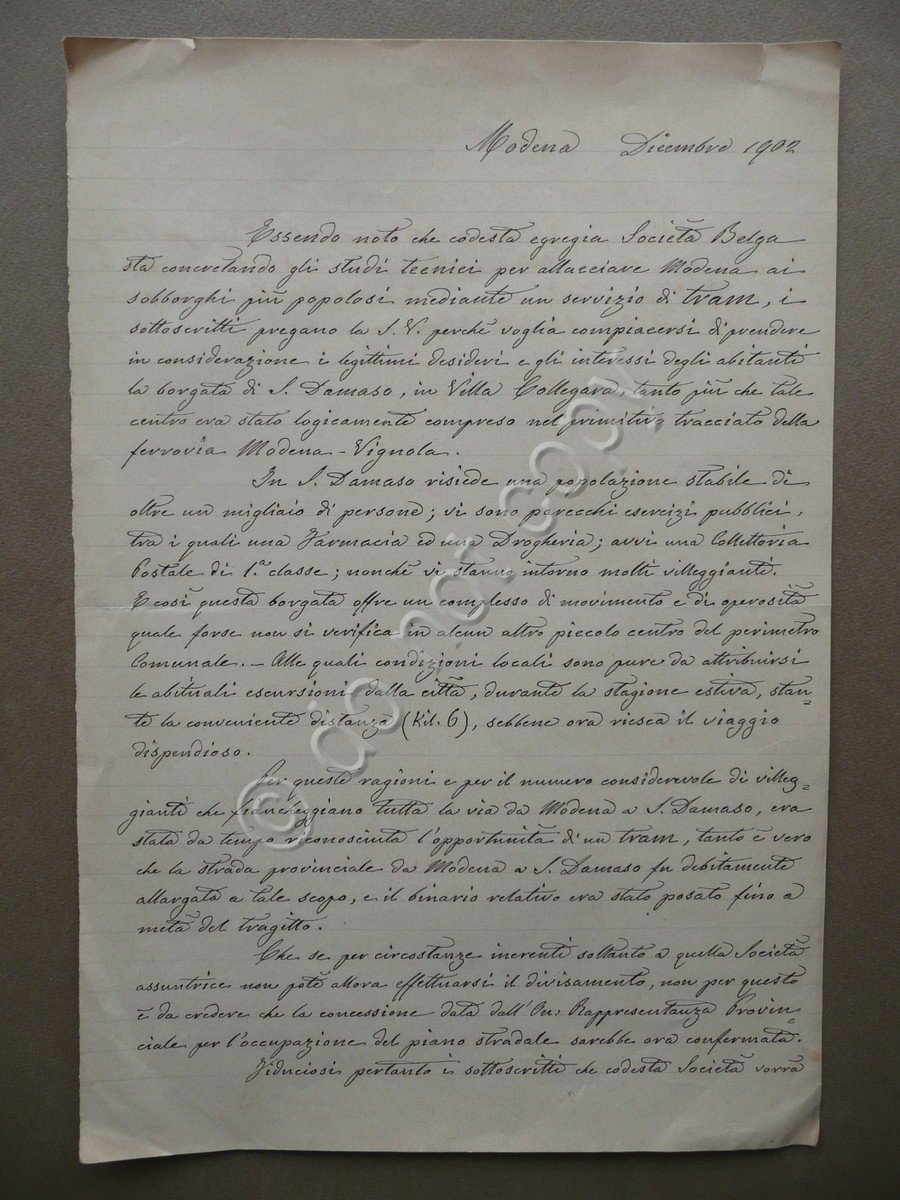 Modena Dicembre 1902
Essendo noto che codesta egregia Società Belga
sta concretando gli studi tecnici per allacciare Modena ai
sobborghi più popolosi mediante un servizio di tram, i
sottoscritti pregano la S. V. perchè voglia compiacersi di prendere
in considerazione i legittimi desideri e gli interessi degli abitanti
la borgata di S. Damaso, in Villa Collegara, tanto più che tale
centro era stato logicamente compreso nel primitivo tracciato della
ferrovia Modena-Vignola.
In S. Damaso risiede una popolazione stabile di
oltre un migliaio di persone; vi sono parecchi esercizi pubblici,
tra i quali una Farmacia ed una Drogheria; avvi una Collettoria
Postale di 1.ª classe; nonchè vi stanno intorno molti villeggianti.
E così questa borgata offre un complesso di movimento e di operosità
quale forse non si verifica in alcun altro piccolo centro del perimetro
Comunale. — Alle quali condizioni locali sono pure da attribuirsi
le abituali escursioni dalla città, durante la stagione estiva, stan=
te la conveniente distanza (Kil. 6), sebbene ora riesca il viaggio
dispendioso.
Per queste ragioni e per il numero considerevole di villeg=
gianti che fiancheggiano tutta la via da Modena a S. Damaso, era
stata da tempo riconosciuta l'opportunità di un tram, tanto è vero
che la strada provinciale da Modena a S. Damaso fu debitamente
allargata a tale scopo, e il binario relativo era stato posato fino a
metà del tragitto.
Che se per circostanze inerenti soltanto a quella Società
assuntrice non potè allora effettuarsi il divisamento, non per questo
è da credere che la concessione data dall'On: Rappresentanza Provin=
ciale per l'occupazione del piano stradale sarebbe ora confermata.
Fiduciosi pertanto i sottoscritti che codesta Società vorrà
© do not copy